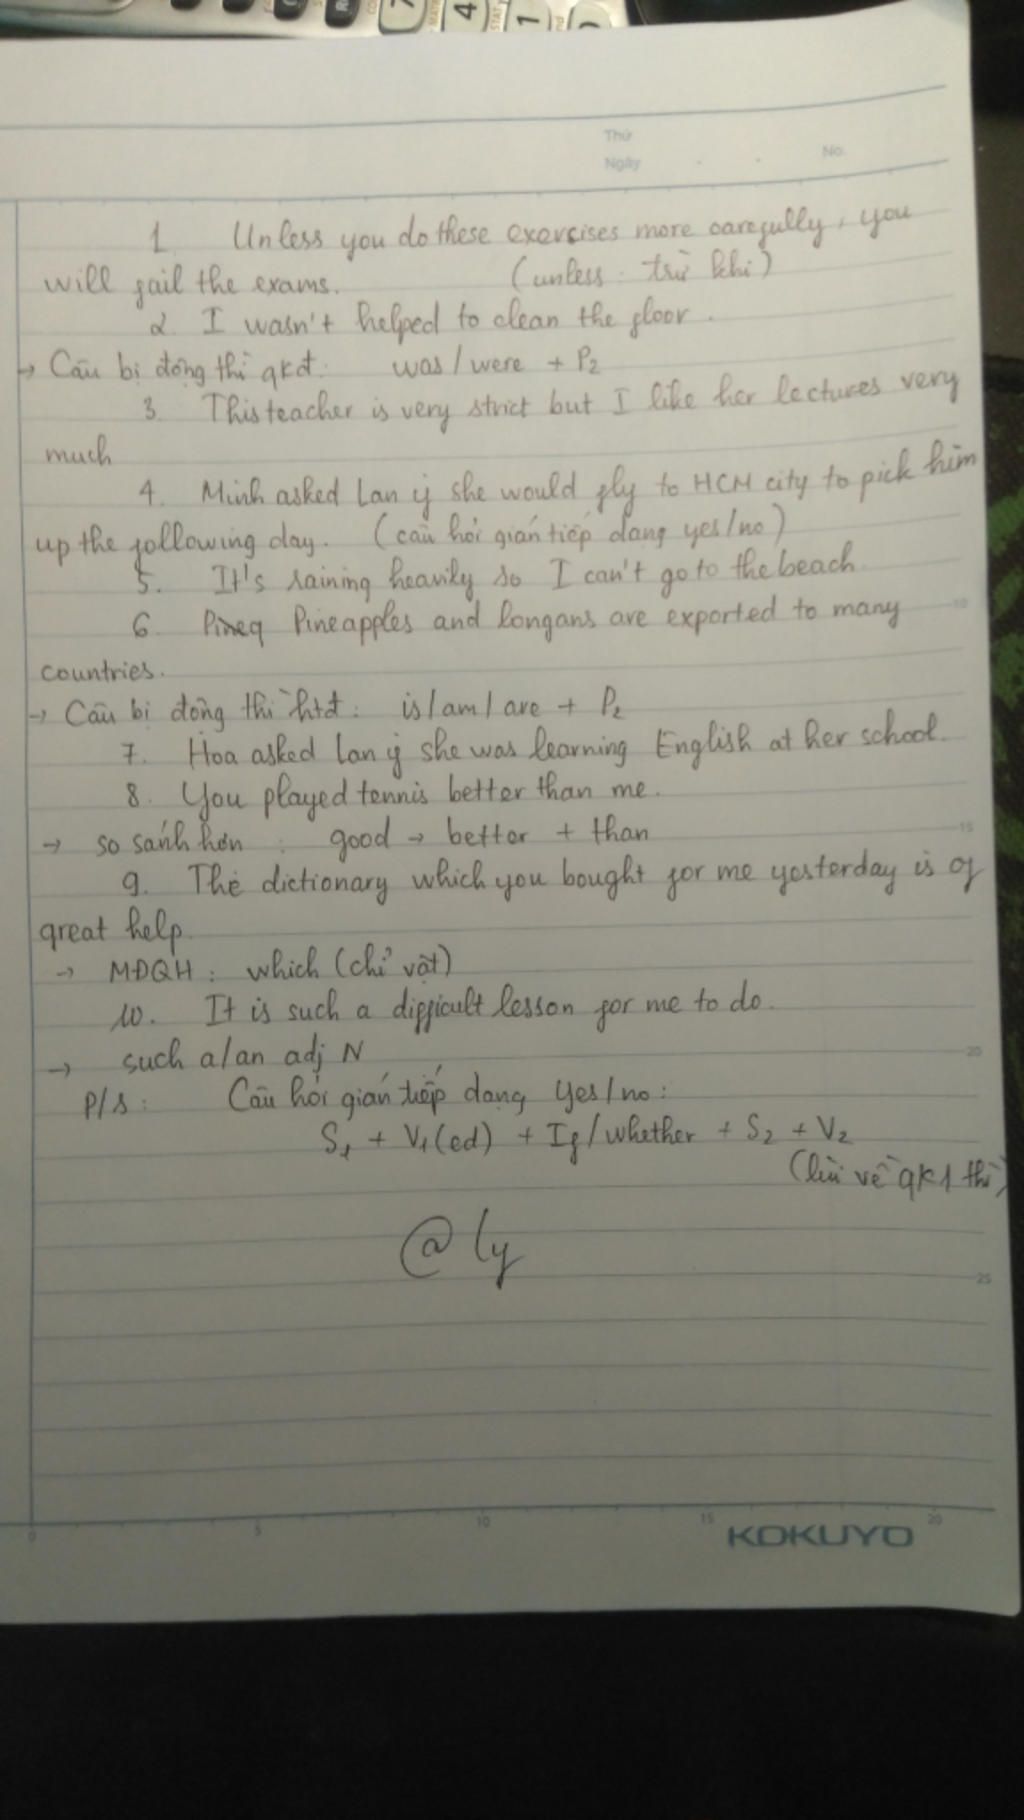 4
1
Thứ
Ngày
No.
1. Unless you do these exercises more carefully, you
will fail the exams. (unless: trừ khi)
2. I wasn't helped to clean the floor.
→ Câu bị động thì qkđ: was / were + P2
3. This teacher is very strict but I like her lectures very
much
4. Minh asked Lan if she would fly to HCM city to pick him
up the following day. (câu hỏi gián tiếp dạng yes/no)
5. It's raining heavily so I can't go to the beach.
6. Pineq Pineapples and longans are exported to many
10
countries.
→ Câu bị động thì htđ: is / am / are + P2
7. Hoa asked Lan if she was learning English at her school.
8. You played tennis better than me.
→ so sánh hơn: good → better + than
15
9. The dictionary which you bought for me yesterday is of
great help.
→ MĐQH: which (chỉ vật)
10. It is such a difficult lesson for me to do.
→ such a/an adj N
20
P/s: Câu hỏi gián tiếp dạng Yes/no:
S1 + V1(ed) + If/whether + S2 + V2
(lùi về qk 1 thì)
@ ly
25
0 5 10 15 20
KOKUYO